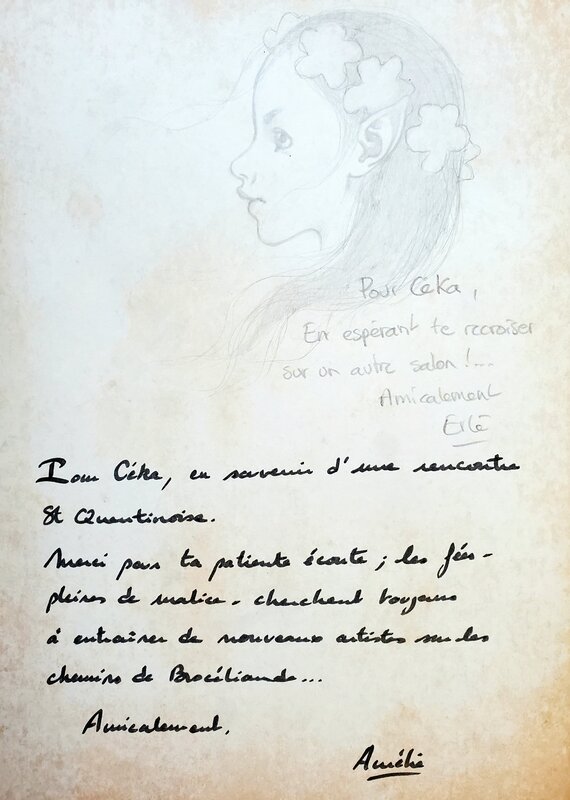 Pour Céka,
En espérant te recroiser
sur un autre salon !...
Amicalement
Erlé
Pour Céka, en souvenir d'une rencontre
St Quentinoise.
Merci pour ta patiente écoute ; les fées -
pleines de malice - cherchent toujours
à entraîner de nouveaux artistes sur les
chemins de Brocéliande...
Amicalement,
Amélie